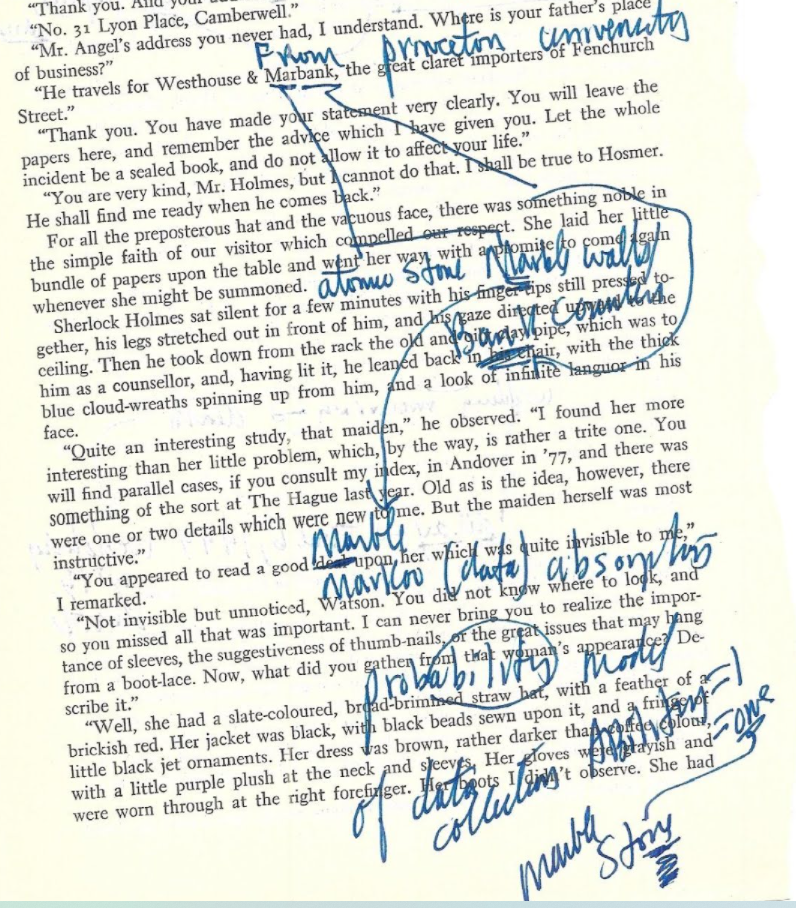 "Thank you. And your
"No. 31 Lyon Place, Camberwell."
"Mr. Angel's address you never had, I understand. Where is your father's place
of business?"
From princeton university
"He travels for Westhouse & Marbank, the great claret importers of Fenchurch
Street."
"Thank you. You have made your statement very clearly. You will leave the
papers here, and remember the advice which I have given you. Let the whole
incident be a sealed book, and do not allow it to affect your life."
"You are very kind, Mr. Holmes, but I cannot do that. I shall be true to Hosmer.
He shall find me ready when he comes back."
For all the preposterous hat and the vacuous face, there was something noble in
the simple faith of our visitor which compelled our respect. She laid her little
bundle of papers upon the table and went her way, with a promise to come again
whenever she might be summoned.
atomic Stone Marble walls
Sherlock Holmes sat silent for a few minutes with his finger-tips still pressed to-
gether, his legs stretched out in front of him, and his gaze directed upward to the
Bank Counters
ceiling. Then he took down from the rack the old and oily clay pipe, which was to
him as a counsellor, and, having lit it, he leaned back in his chair, with the thick
blue cloud-wreaths spinning up from him, and a look of infinite languor in his
face.
"Quite an interesting study, that maiden," he observed. "I found her more
interesting than her little problem, which, by the way, is rather a trite one. You
will find parallel cases, if you consult my index, in Andover in '77, and there was
something of the sort at The Hague last year. Old as is the idea, however, there
were one or two details which were new to me. But the maiden herself was most
instructive."
Marble
"You appeared to read a good deal upon her which was quite invisible to me,"
I remarked.
Markov (data) absorption
"Not invisible but unnoticed, Watson. You did not know where to look, and
so you missed all that was important. I can never bring you to realize the impor-
tance of sleeves, the suggestiveness of thumb-nails, or the great issues that may hang
from a boot-lace. Now, what did you gather from that woman's appearance? De-
scribe it."
probability model
"Well, she had a slate-coloured, broad-brimmed straw hat, with a feather of a
brickish red. Her jacket was black, with black beads sewn upon it, and a fringe of
little black jet ornaments. Her dress was brown, rather darker than coffee colour,
with a little purple plush at the neck and sleeves. Her gloves were grayish and
were worn through at the right forefinger. Her boots I didn't observe. She had
=1
=one
of data
collection
marble
Stone